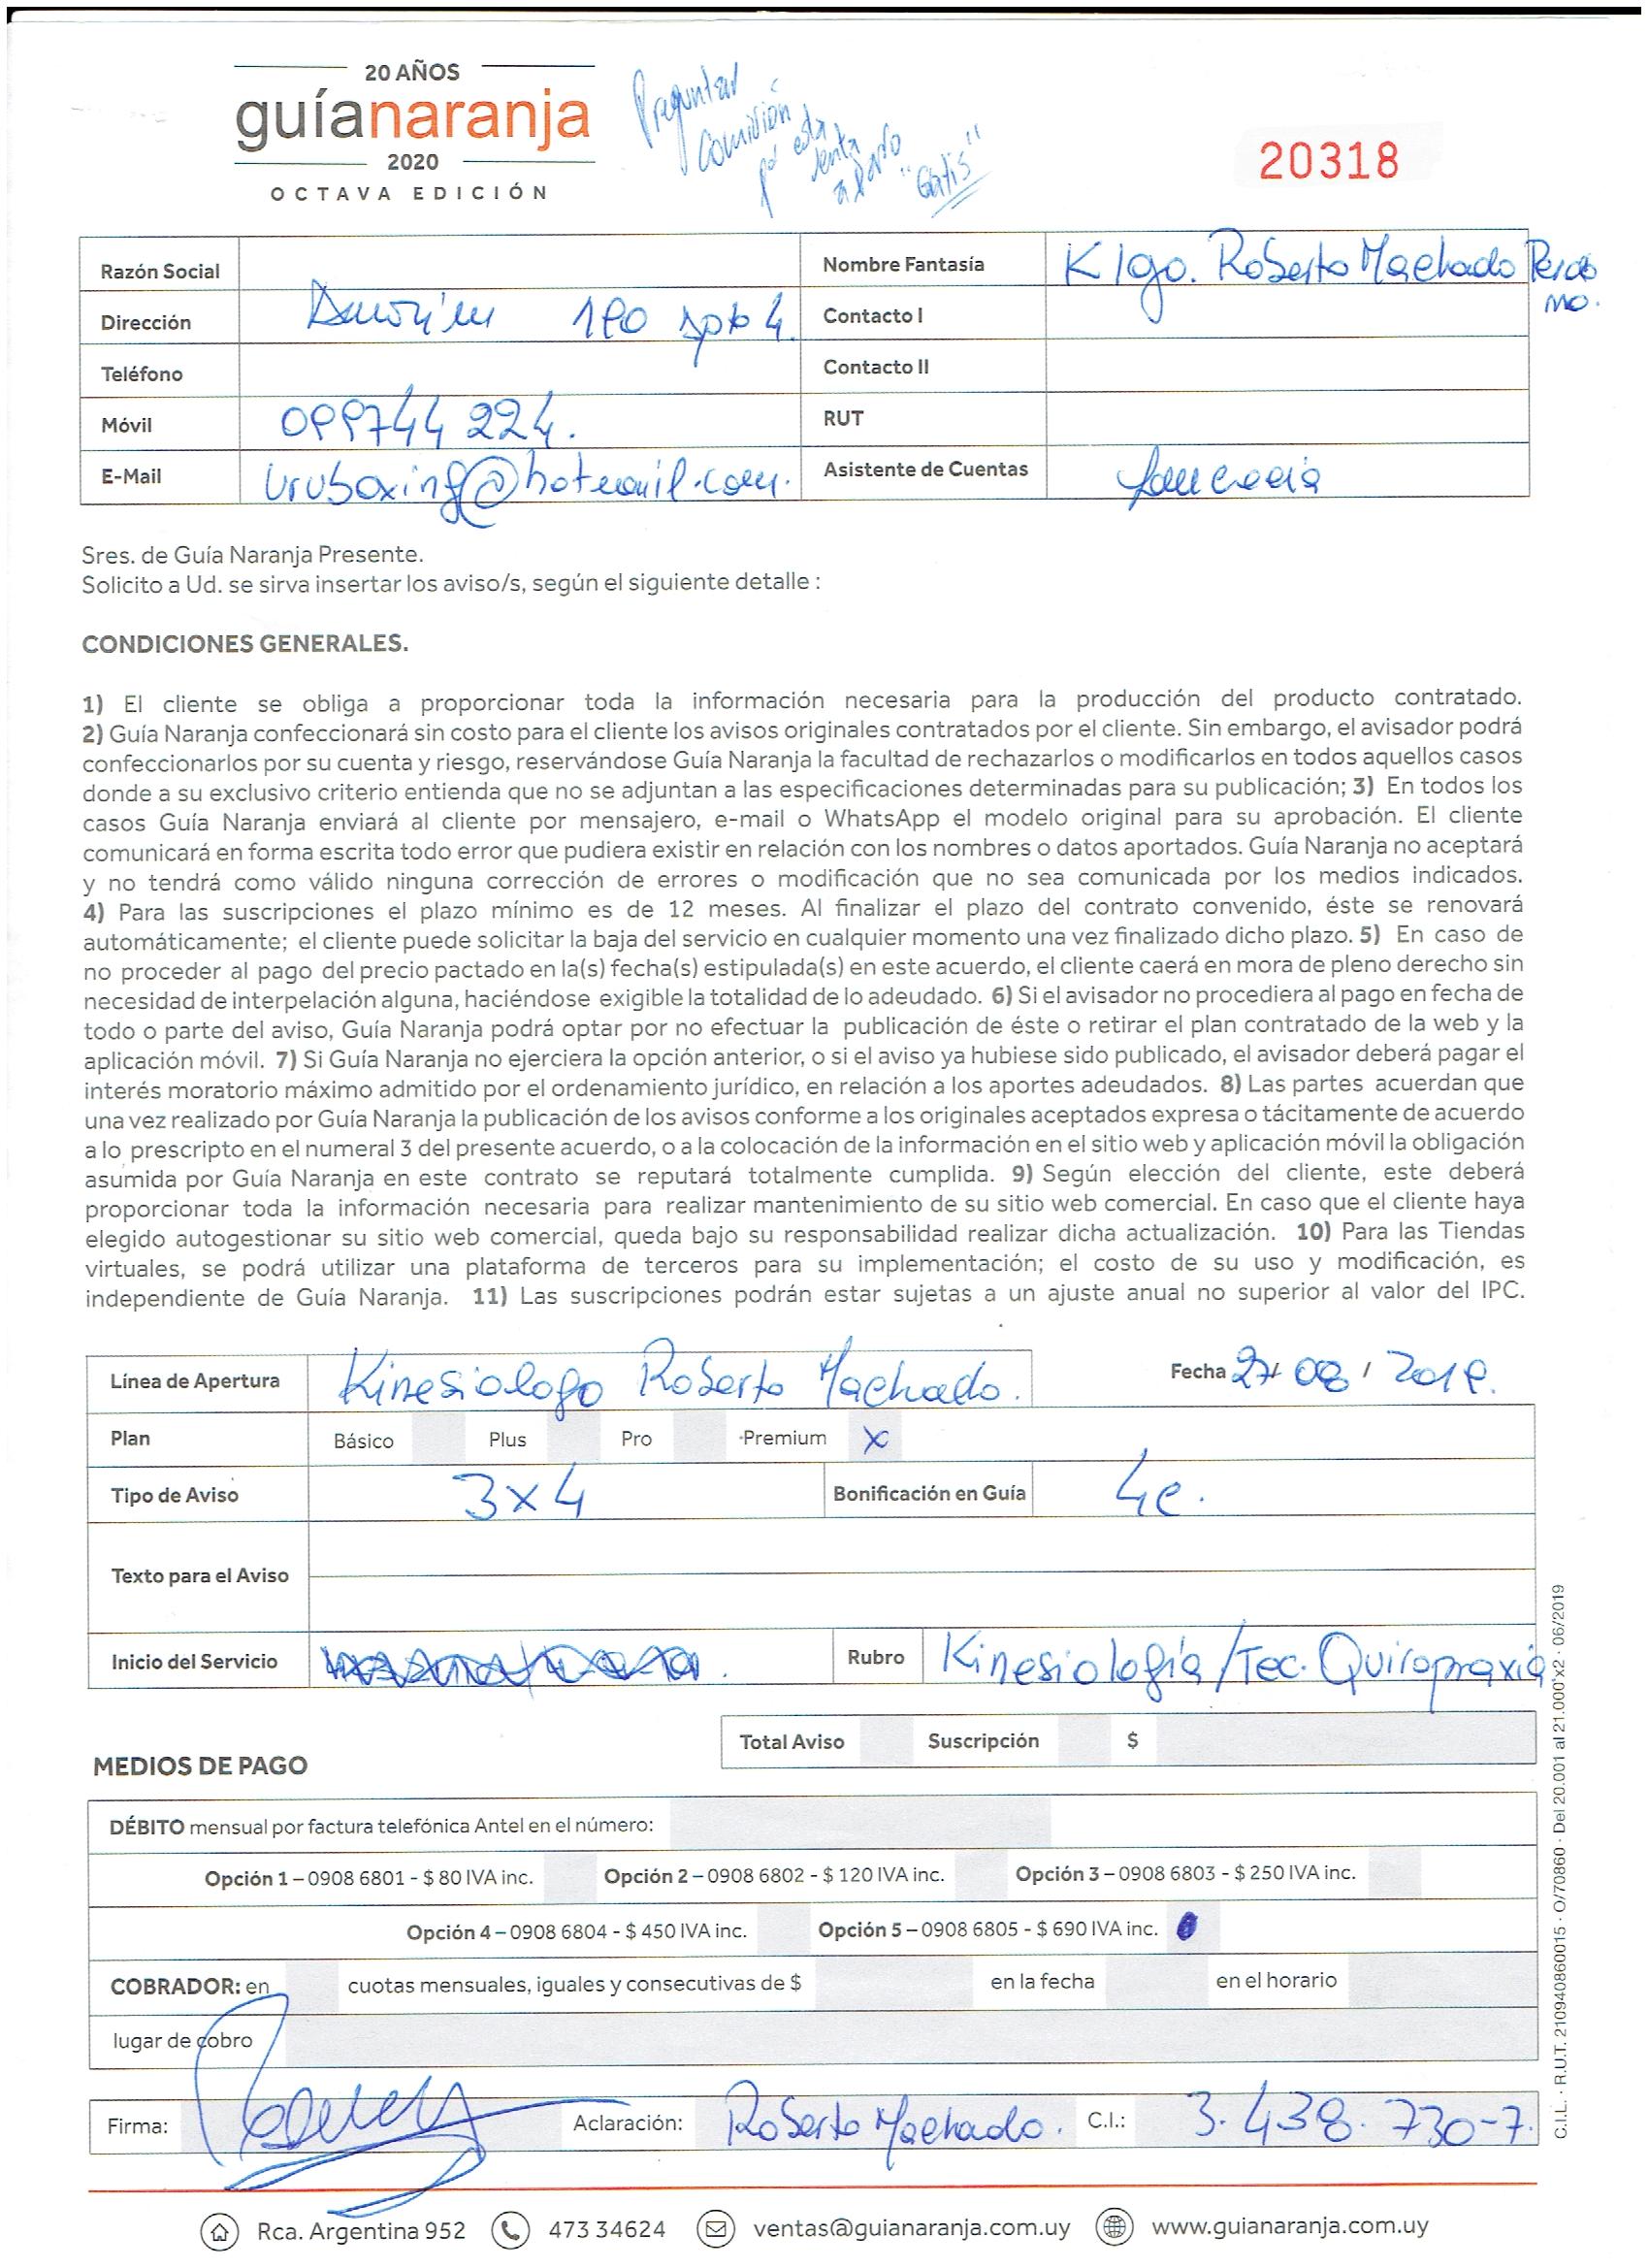 20 AÑOS
guíanaranja
2020
OCTAVA EDICIÓN
Preguntar
Comisión
esta
venta
"Gratis"
20318
Razón Social
Nombre Fantasía Klgo. Roberto Machado Perdomo.
Dirección 190 apto 4.
Contacto I
Teléfono
Contacto II
Móvil 099744 224.
RUT
E-Mail uruboxing@hotmail.com.
Asistente de Cuentas
Sres. de Guía Naranja Presente.
Solicito a Ud. se sirva insertar los aviso/s, según el siguiente detalle :
CONDICIONES GENERALES.
1) El cliente se obliga a proporcionar toda la información necesaria para la producción del producto contratado.
2) Guía Naranja confeccionará sin costo para el cliente los avisos originales contratados por el cliente. Sin embargo, el avisador podrá
confeccionarlos por su cuenta y riesgo, reservándose Guía Naranja la facultad de rechazarlos o modificarlos en todos aquellos casos
donde a su exclusivo criterio entienda que no se adjuntan a las especificaciones determinadas para su publicación; 3) En todos los
casos Guía Naranja enviará al cliente por mensajero, e-mail o WhatsApp el modelo original para su aprobación. El cliente
comunicará en forma escrita todo error que pudiera existir en relación con los nombres o datos aportados. Guía Naranja no aceptará
y no tendrá como válido ninguna corrección de errores o modificación que no sea comunicada por los medios indicados.
4) Para las suscripciones el plazo mínimo es de 12 meses. Al finalizar el plazo del contrato convenido, éste se renovará
automáticamente; el cliente puede solicitar la baja del servicio en cualquier momento una vez finalizado dicho plazo. 5) En caso de
no proceder al pago del precio pactado en la(s) fecha(s) estipulada(s) en este acuerdo, el cliente caerá en mora de pleno derecho sin
necesidad de interpelación alguna, haciéndose exigible la totalidad de lo adeudado. 6) Si el avisador no procediera al pago en fecha de
todo o parte del aviso, Guía Naranja podrá optar por no efectuar la publicación de éste o retirar el plan contratado de la web y la
aplicación móvil. 7) Si Guía Naranja no ejerciera la opción anterior, o si el aviso ya hubiese sido publicado, el avisador deberá pagar el
interés moratorio máximo admitido por el ordenamiento jurídico, en relación a los aportes adeudados. 8) Las partes acuerdan que
una vez realizado por Guía Naranja la publicación de los avisos conforme a los originales aceptados expresa o tácitamente de acuerdo
a lo prescripto en el numeral 3 del presente acuerdo, o a la colocación de la información en el sitio web y aplicación móvil la obligación
asumida por Guía Naranja en este contrato se reputará totalmente cumplida. 9) Según elección del cliente, este deberá
proporcionar toda la información necesaria para realizar mantenimiento de su sitio web comercial. En caso que el cliente haya
elegido autogestionar su sitio web comercial, queda bajo su responsabilidad realizar dicha actualización. 10) Para las Tiendas
virtuales, se podrá utilizar una plataforma de terceros para su implementación; el costo de su uso y modificación, es
independiente de Guía Naranja. 11) Las suscripciones podrán estar sujetas a un ajuste anual no superior al valor del IPC.
Línea de Apertura Kinesiologo Roberto Machado.
Fecha 27/ 08 / 2019.
Plan Básico Plus Pro Premium X
Tipo de Aviso 3x4
Bonificación en Guía 4c.
Texto para el Aviso
Inicio del Servicio
Rubro Kinesiología/Tec. Quiropraxia
Total Aviso Suscripción $
MEDIOS DE PAGO
DÉBITO mensual por factura telefónica Antel en el número:
Opción 1 – 0908 6801 - $ 80 IVA inc. Opción 2 – 0908 6802 - $ 120 IVA inc. Opción 3 – 0908 6803 - $ 250 IVA inc.
Opción 4 – 0908 6804 - $ 450 IVA inc. Opción 5 – 0908 6805 - $ 690 IVA inc.
COBRADOR: en cuotas mensuales, iguales y consecutivas de $ en la fecha en el horario
lugar de cobro
Firma:
Aclaración: Roberto Machado. C.I.: 3.438.730-7.
C.I.L. · R.U.T. 210940860015 · O/70860 · Del 20.001 al 21.000 x2 · 06/2019
Rca. Argentina 952 473 34624 ventas@guianaranja.com.uy www.guianaranja.com.uy